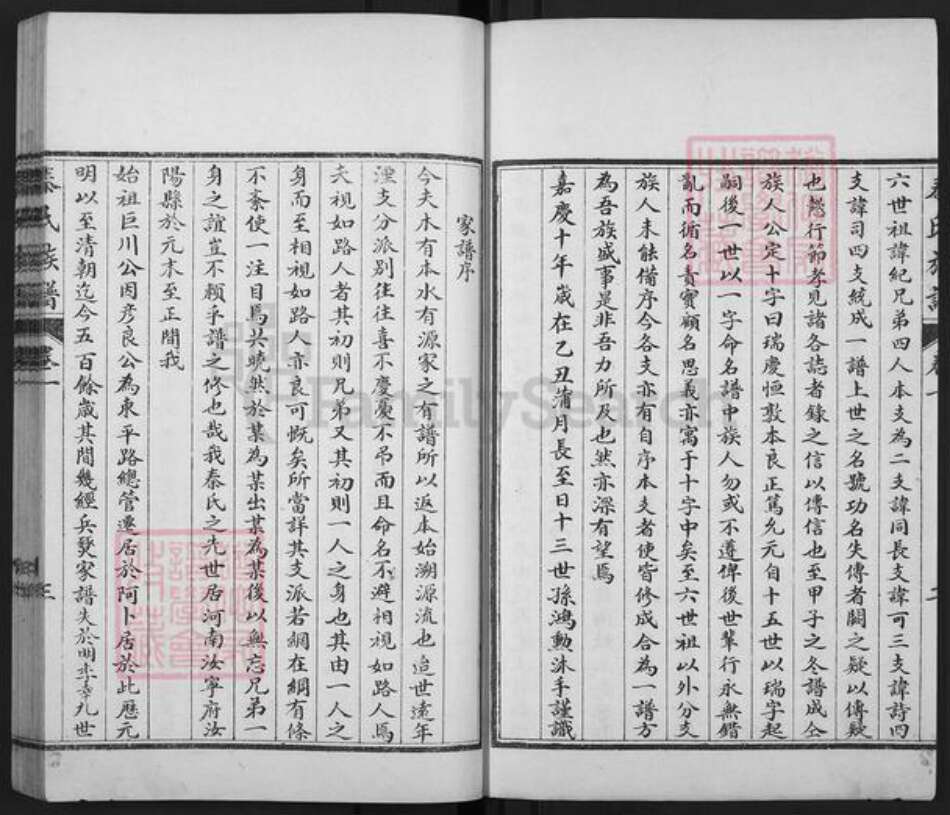 六世祖諱紀兄弟四人本支為二支諱同長支諱可三支諱詩四
支諱司四支統成一譜上世之名號功名失傳者闕之疑以傳疑
也懿行節孝見諸各誌者錄之信以傳信也至甲子之冬譜成仝
族人公定十字曰瑞慶恒敦本良正篤允元自十五世以瑞字起
嗣後一世以一字命名譜中族人勿或不遵俾後世輩行永無錯
亂而循名責實顧名思義亦寓于十字中矣至六世祖以外分支
族人未能備序今各支亦有自序本支者使皆修成合為一譜方
為吾族盛事是非吾力所及也然亦深有望焉
嘉慶十年歲在乙丑蒲月長至日十三世孫鴻勳沐手謹識
家譜序
今夫木有本水有源家之有譜所以返本始溯源流也迨世遠年
湮支分派別往往喜不慶憂不吊而且命名不避相視如路人焉
夫視如路人者其初則兄弟又其初則一人之身也其由一人之
身而至相視如路人亦良可慨矣所當詳其支派若網在綱有條
不紊使一注目焉共曉然於某為某出某為某後以無忘兄弟一
身之誼豈不賴乎譜之修也哉我秦氏之先世居河南汝寧府汝
陽縣於元末至正間我
始祖巨川公因彥良公為東平路總管遷居於阿卜居於此歷元
明以至清朝迄今五百餘歲其間幾經兵燹家譜失於明季幸九世
秦氏族譜 卷一 三
FamilySearch